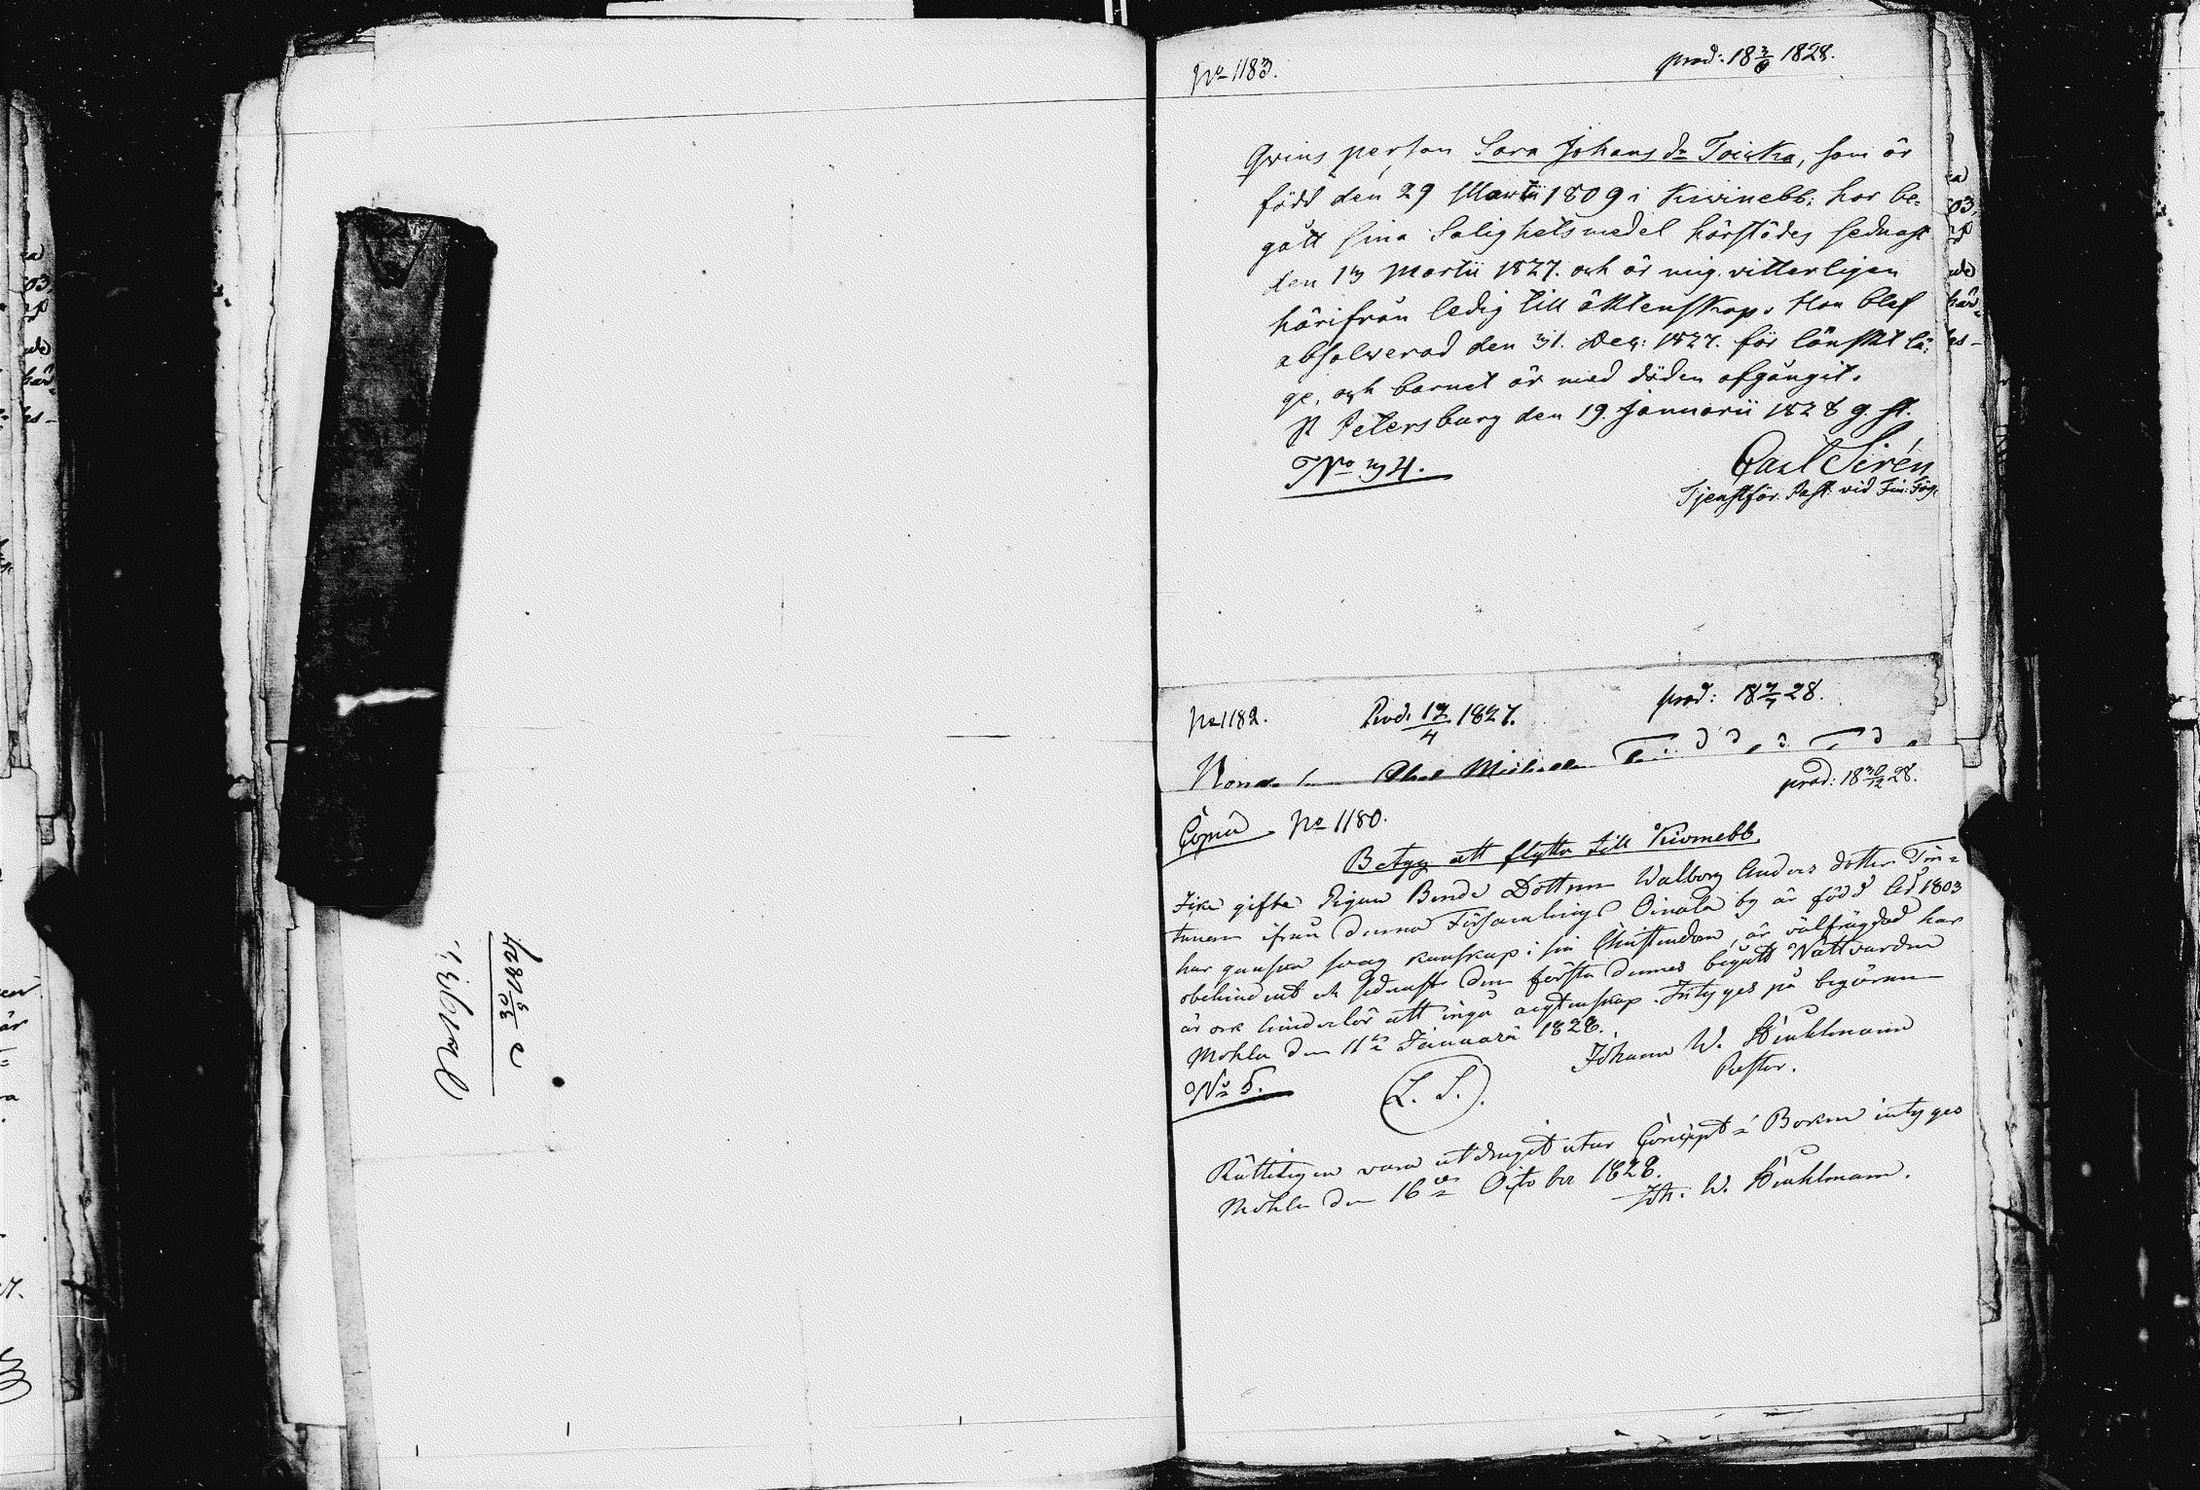 No 1183. prod: 18 3/8 1828.
Qvins person Sara Johans dr Toicka, som är
född den 29 Martii 1809 i Kivinebb; har be-
gått sina Salighetsmedel härstädes sednast
den 13 Martii 1827. och är mig vitterligen
härifrån ledig till äktenskap. Hon blef
absolverad den 31. Dec: 1827. för lönskt lä-
ge, och barnet är med döden afgångit.
St Petersburg den 19. Januarii 1828 g. st.
No 34. Carl Sirén
Tjenstför. Past: vid Fin: Förs.
No 1182. Prod. 17/4 1827. prod: 18 7/7 28.
prod: 18 30/12 28.
Copia No 1180.
Betyg att flytta till Kivinebb
gifta Pigan Bonde Dottren Walborg Anders dotter Tin-
tunen ifrån denna Församlings Oinala by är född Ao 1803
har ganska svag kunskap i sin Christendom, är välfrägdad har
obehindrat och sednast den första dennes begått Nattvarden
är ock hinderlös att ingå ägtenskap. Intyges på begäran
Mohla den 11te Januarii 1828.
Johann W. Stråhlmann
Pastor.
No 5. (L. S.)
Rätteligen vara utdraget utur Concept-Boken intyges
Mohla den 16de October 1828.
Joh. W. Stråhlmann.